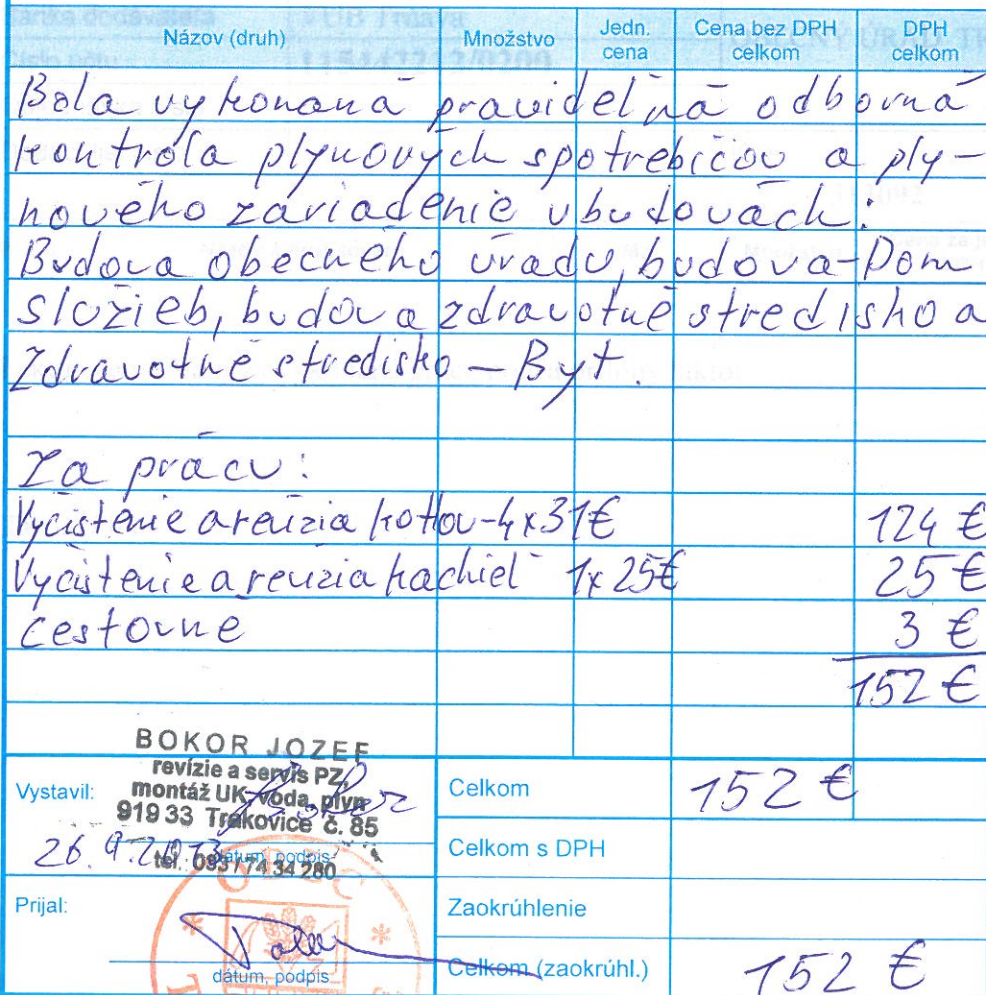 Názov (druh) Množstvo Jedn. cena Cena bez DPH celkom DPH celkom
Bola vykonaná pravidelná odborná
kontróla plynových spotrebičov a ply-
nového zariadenie v budovách:
Budova obecného úradu, budova-Dom
služieb, budova zdravotné stredisko a
Zdravotné stredisko - Byt.
Za prácu:
Vyčistenie a revízia kotlov - 4 x 31€ 124 €
Vyčistenie a revízia kachiel 1x 25€ 25 €
cestovne 3 €
152 €
BOKOR JOZEF
revízie a servis PZ,
montáž UK, voda, plyn
919 33 Trakovice č. 85
tel. 0931 74 34 280
Vystavil:
26.9.2013
dátum, podpis
Celkom 152 €
Celkom s DPH
Prijal:
OBEC
dátum, podpis
Zaokrúhlenie
Celkom (zaokrúhl.) 152 €